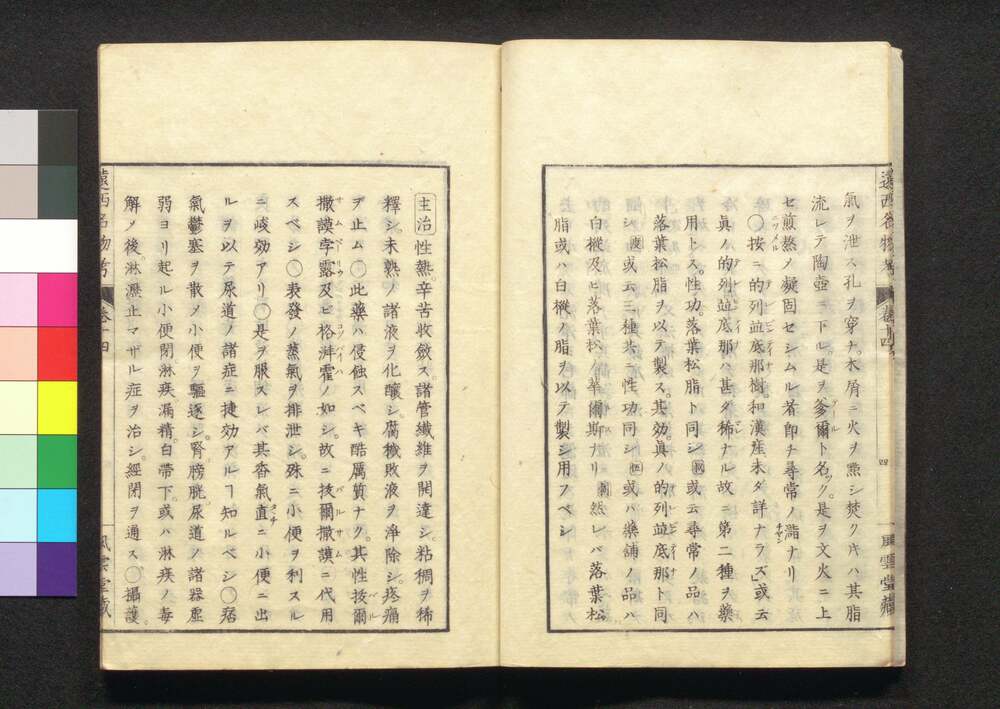 遠西名物考 卷十四 四 風雲堂藏
氣ヲ泄ス孔ヲ穿チ。木屑ニ火ヲ㸃シ焚クキハ其脂
流レテ陶壺ニ下ル。是ヲ爹爾ト名ック。是ヲ文火ニ上
セ煎熬メ凝固セシムル者即チ尋常ノ瀝ナリ
〇按ニ的列並底那樹。和漢産未ダ詳ナラズ」或云
眞ノ的列並底那ハ甚ダ稀ナル故ニ第二種ヲ藥
用トス。性功。落葉松脂ト同シ 或云尋常ノ品ハ
落葉松脂ヲ以テ製ス。其効。眞ノ的列並底那ト同
シ 或云三種共ニ性功同シ 或ハ藥舗ノ品ハ
白樅及ヒ落葉松ノ 爾斯ナリ 然レバ落葉松
脂或ハ白樅ノ脂ヲ以テ製シ用フベシ
主治 性熱。辛苦收斂ス。諸管纖維ヲ開達シ。粘稠ヲ稀
釋シ未熟ノ諸液ヲ化釀シ。腐穢敗液ヲ淨除シ。疼痛
ヲ止ム〇此藥ハ侵蝕スベキ酷厲質ナク。其性拔爾
撒謨孛露及ヒ格湃霍ノ如シ。故ニ拔爾撒謨ニ代用
スベシ〇表發ノ蒸氣ヲ排泄シ。殊ニ小便ヲ利スル
ニ峻効アリ〇是ヲ服スレバ其香氣直ニ小便ニ出
ルヲ以テ尿道ノ諸症ニ捷効アルヿ知ルベシ〇痞
氣鬱塞ヲ散メ小便ヲ驅逐シ。腎膀胱尿道ノ諸器虛
弱ヨリ起ル小便閉。淋疾漏精。白帶下。或ハ淋疾ノ毒
解ノ後。淋瀝止マザル症ヲ治シ。經閉ヲ通ス〇攝護
遠西名物考 卷十四 風雲堂藏